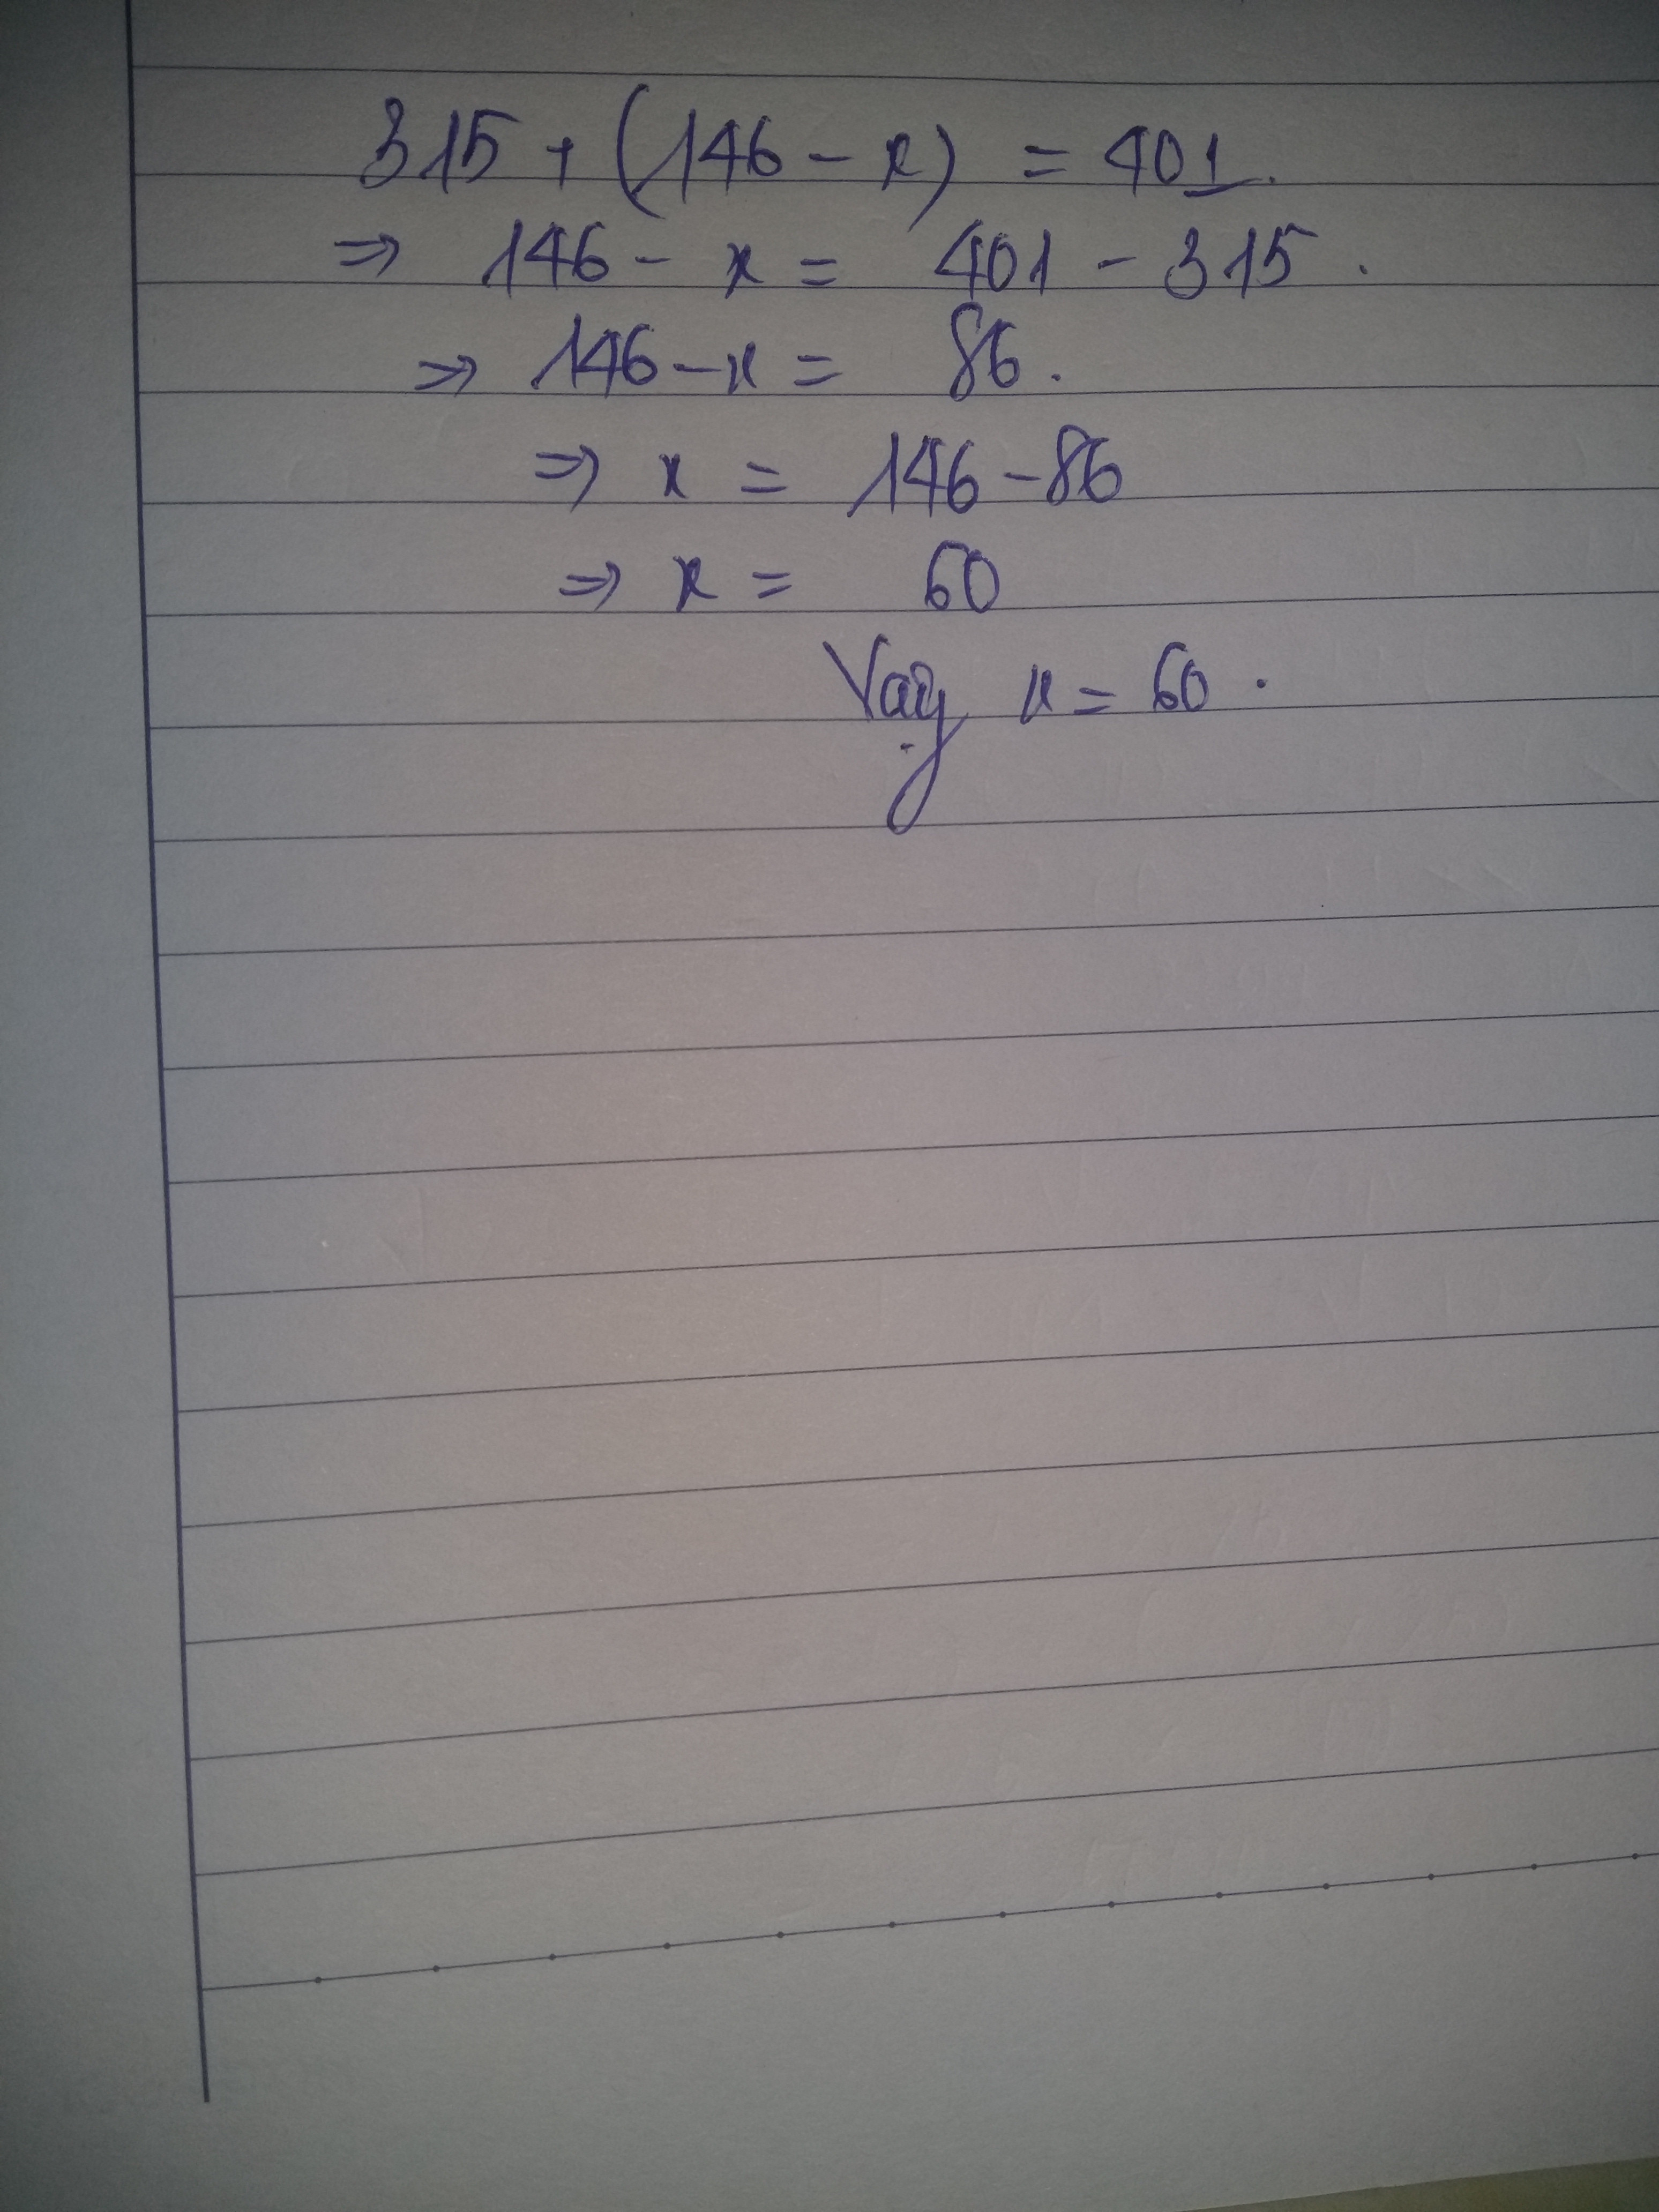 315 + (146 - x) = 401.
⇒ 146 - x = 401 - 315.
⇒ 146 - x = 86.
⇒ x = 146 - 86
⇒ x = 60
Vậy x = 60.